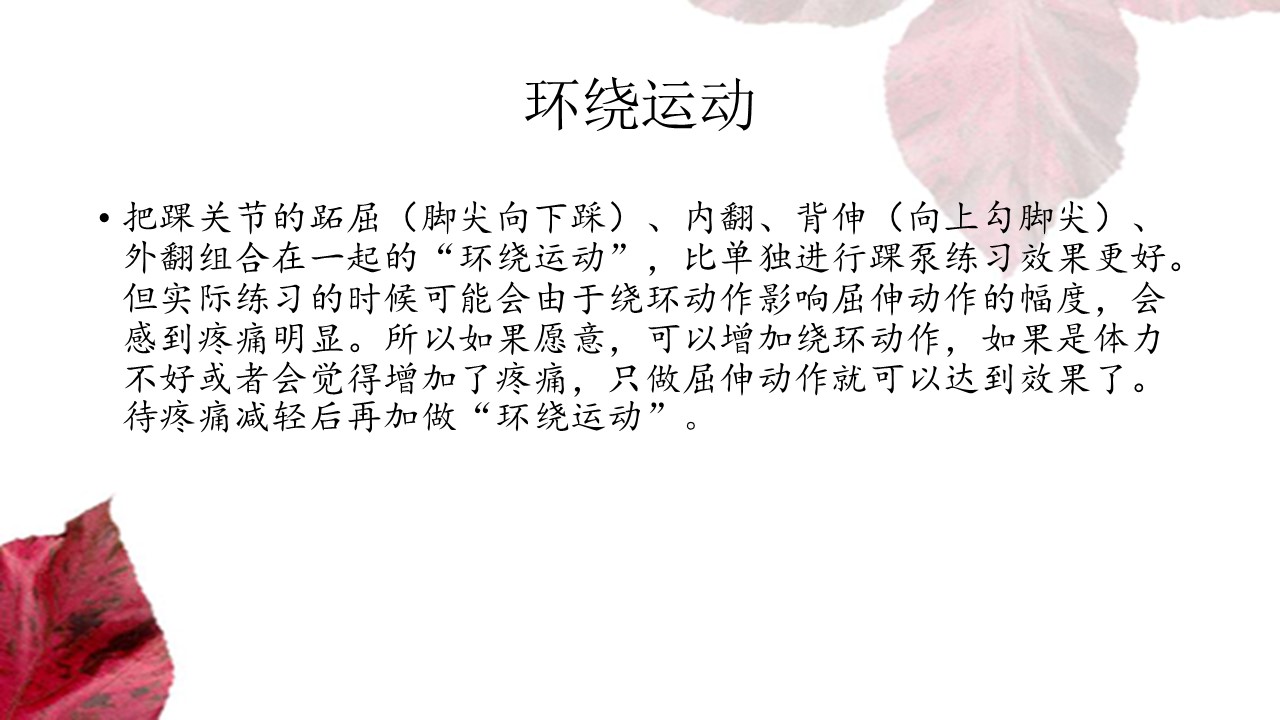 环绕运动
• 把踝关节的跖屈（脚尖向下踩）、内翻、背伸（向上勾脚尖）、
外翻组合在一起的“环绕运动”，比单独进行踝泵练习效果更好。
但实际练习的时候可能会由于绕环动作影响屈伸动作的幅度，会
感到疼痛明显。所以如果愿意，可以增加绕环动作，如果是体力
不好或者会觉得增加了疼痛，只做屈伸动作就可以达到效果了。
待疼痛减轻后再加做“环绕运动”。